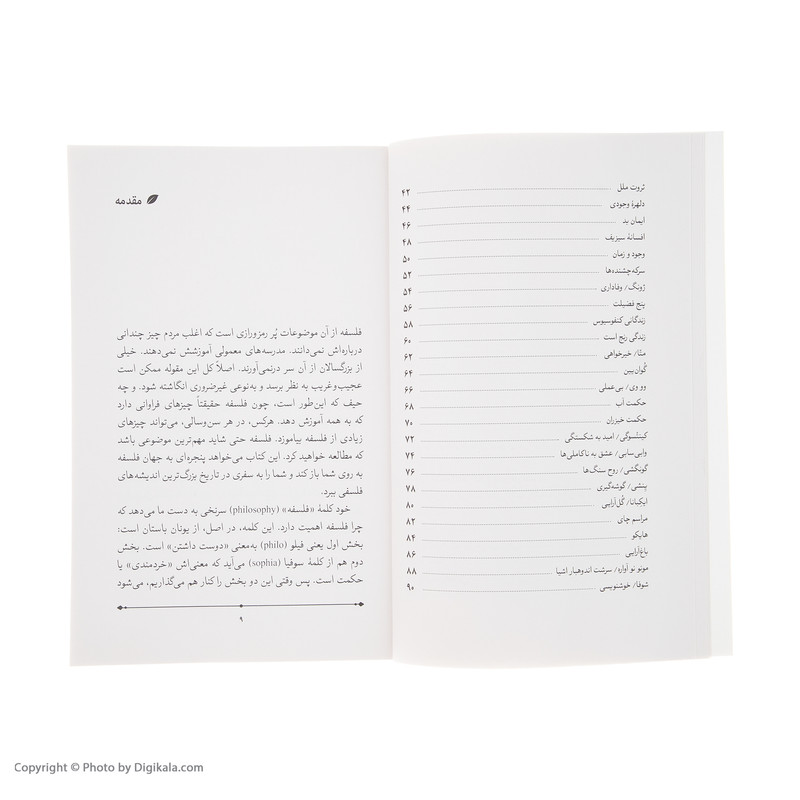 ثروت ملل ۴۲
دلهرهٔ وجودی ۴۴
ایمان بد ۴۶
افسانهٔ سیزیف ۴۸
وجود و زمان ۵۰
سرکه‌چشنده‌ها ۵۲
ژونگ/ وفاداری ۵۴
پنج فضیلت ۵۶
زندگانی کنفوسیوس ۵۸
زندگی رنج است ۶۰
متّا/ خیرخواهی ۶۲
گوان‌یین ۶۴
وو وی/ بی‌عملی ۶۶
حکمت آب ۶۸
حکمت خیزران ۷۰
کینتسوگی/ امید به شکستگی ۷۲
وابی‌سابی/ عشق به ناکاملی‌ها ۷۴
گونگشی/ روح سنگ‌ها ۷۶
ینشی/ گوشه‌گیری ۷۸
ایکبانا/ گل‌آرایی ۸۰
مراسم چای ۸۲
هایکو ۸۴
باغ‌آرایی ۸۶
مونو نو آواره/ سرشت اندوهبار اشیا ۸۸
شوفا/ خوشنویسی ۹۰
مقدمه
فلسفه از آن موضوعات پُر رمزورازی است که اغلب مردم چیز چندانی
درباره‌اش نمی‌دانند. مدرسه‌های معمولی آموزشش نمی‌دهند. خیلی
از بزرگسالان از آن سر درنمی‌آورند. اصلاً کل این مقوله ممکن است
عجیب‌وغریب به نظر برسد و به‌نوعی غیرضروری انگاشته شود. و چه
حیف که این‌طور است، چون فلسفه حقیقتاً چیزهای فراوانی دارد
که به همه آموزش دهد. هرکس، در هر سن‌وسالی، می‌تواند چیزهای
زیادی از فلسفه بیاموزد. فلسفه حتی شاید مهم‌ترین موضوعی باشد
که مطالعه خواهید کرد. این کتاب می‌خواهد پنجره‌ای به جهان فلسفه
به روی شما باز کند و شما را به سفری در تاریخ بزرگ‌ترین اندیشه‌های
فلسفی ببرد.
خود کلمهٔ «فلسفه» (philosophy) سرنخی به دست ما می‌دهد که
چرا فلسفه اهمیت دارد. این کلمه، در اصل، از یونان باستان است:
بخش اول یعنی فیلو (philo) به‌معنی «دوست داشتن» است. بخش
دوم هم از کلمهٔ سوفیا (sophia) می‌آید که معنی‌اش «خردمندی» یا
حکمت است. پس وقتی این دو بخش را کنار هم می‌گذاریم، می‌شود
۹
Copyright © Photo by Digikala.com